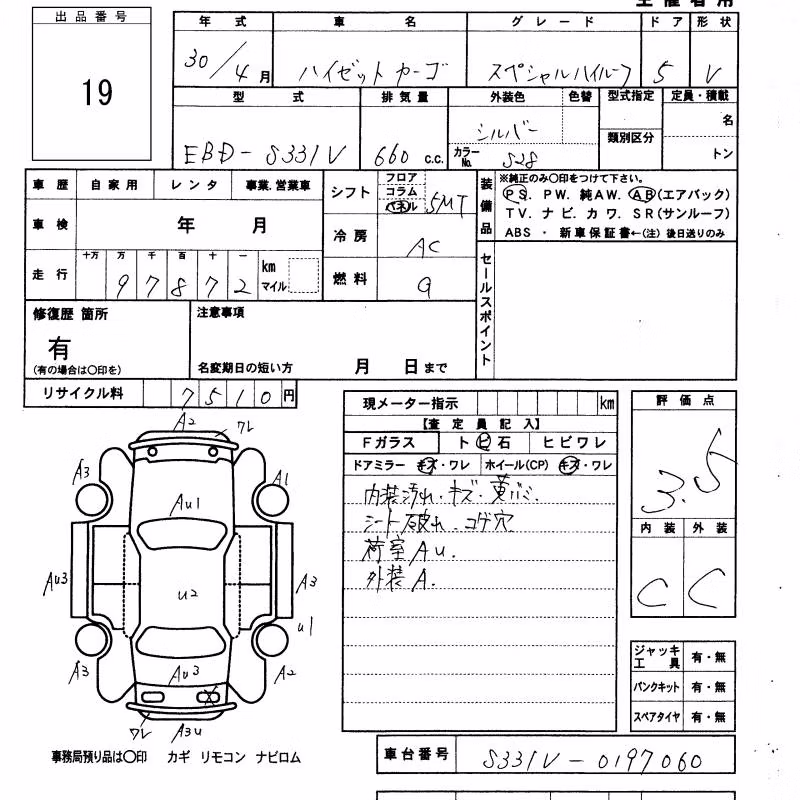 出品番号
19
年式 車名 グレード ドア 形状
30/4月 ハイゼットカーゴ スペシャルハイルーフ 5 V
型式 排気量 外装色 色替 型式指定 定員・積載
名
EBD-S331V 660 c.c. シルバー
カラーNo. S28
類別区分
トン
車歴 自家用 レンタ 事業.営業車
シフト フロア コラム パネル 5MT
装備品
※純正のみ〇印をつけて下さい。
PS. PW. 純AW. AB(エアバック)
TV. ナビ. カワ. SR(サンルーフ)
ABS ・ 新車保証書←(注) 後日送りのみ
車検 年 月
冷房 AC
走行 十万 万 千 百 十 一
9 7 8 7 2 km マイル
燃料 G
セールスポイント
修復歴 箇所
有
(有の場合は〇印を)
注意事項
名変期日の短い方 月 日まで
リサイクル料 7 5 1 0 円
現メーター指示 km
【査定員記入】
Fガラス トビ石 ヒビワレ
ドアミラー キズ・ワレ ホイール(CP) キズ・ワレ
内装汚れ・キズ・
シート破れ・コゲ穴
荷室AU.
外装A.
評価点
3.5
内装 外装
C C
A2
ワレ
A3
A1
AU1
AU3
U2
A3
U1
A3
A2
AU3
ワレ
A3U
ジャッキ工具 有・無
パンクキット 有・無
スペアタイヤ 有・無
事務局預り品は〇印 カギ リモコン ナビロム
車台番号 S331V-0197060